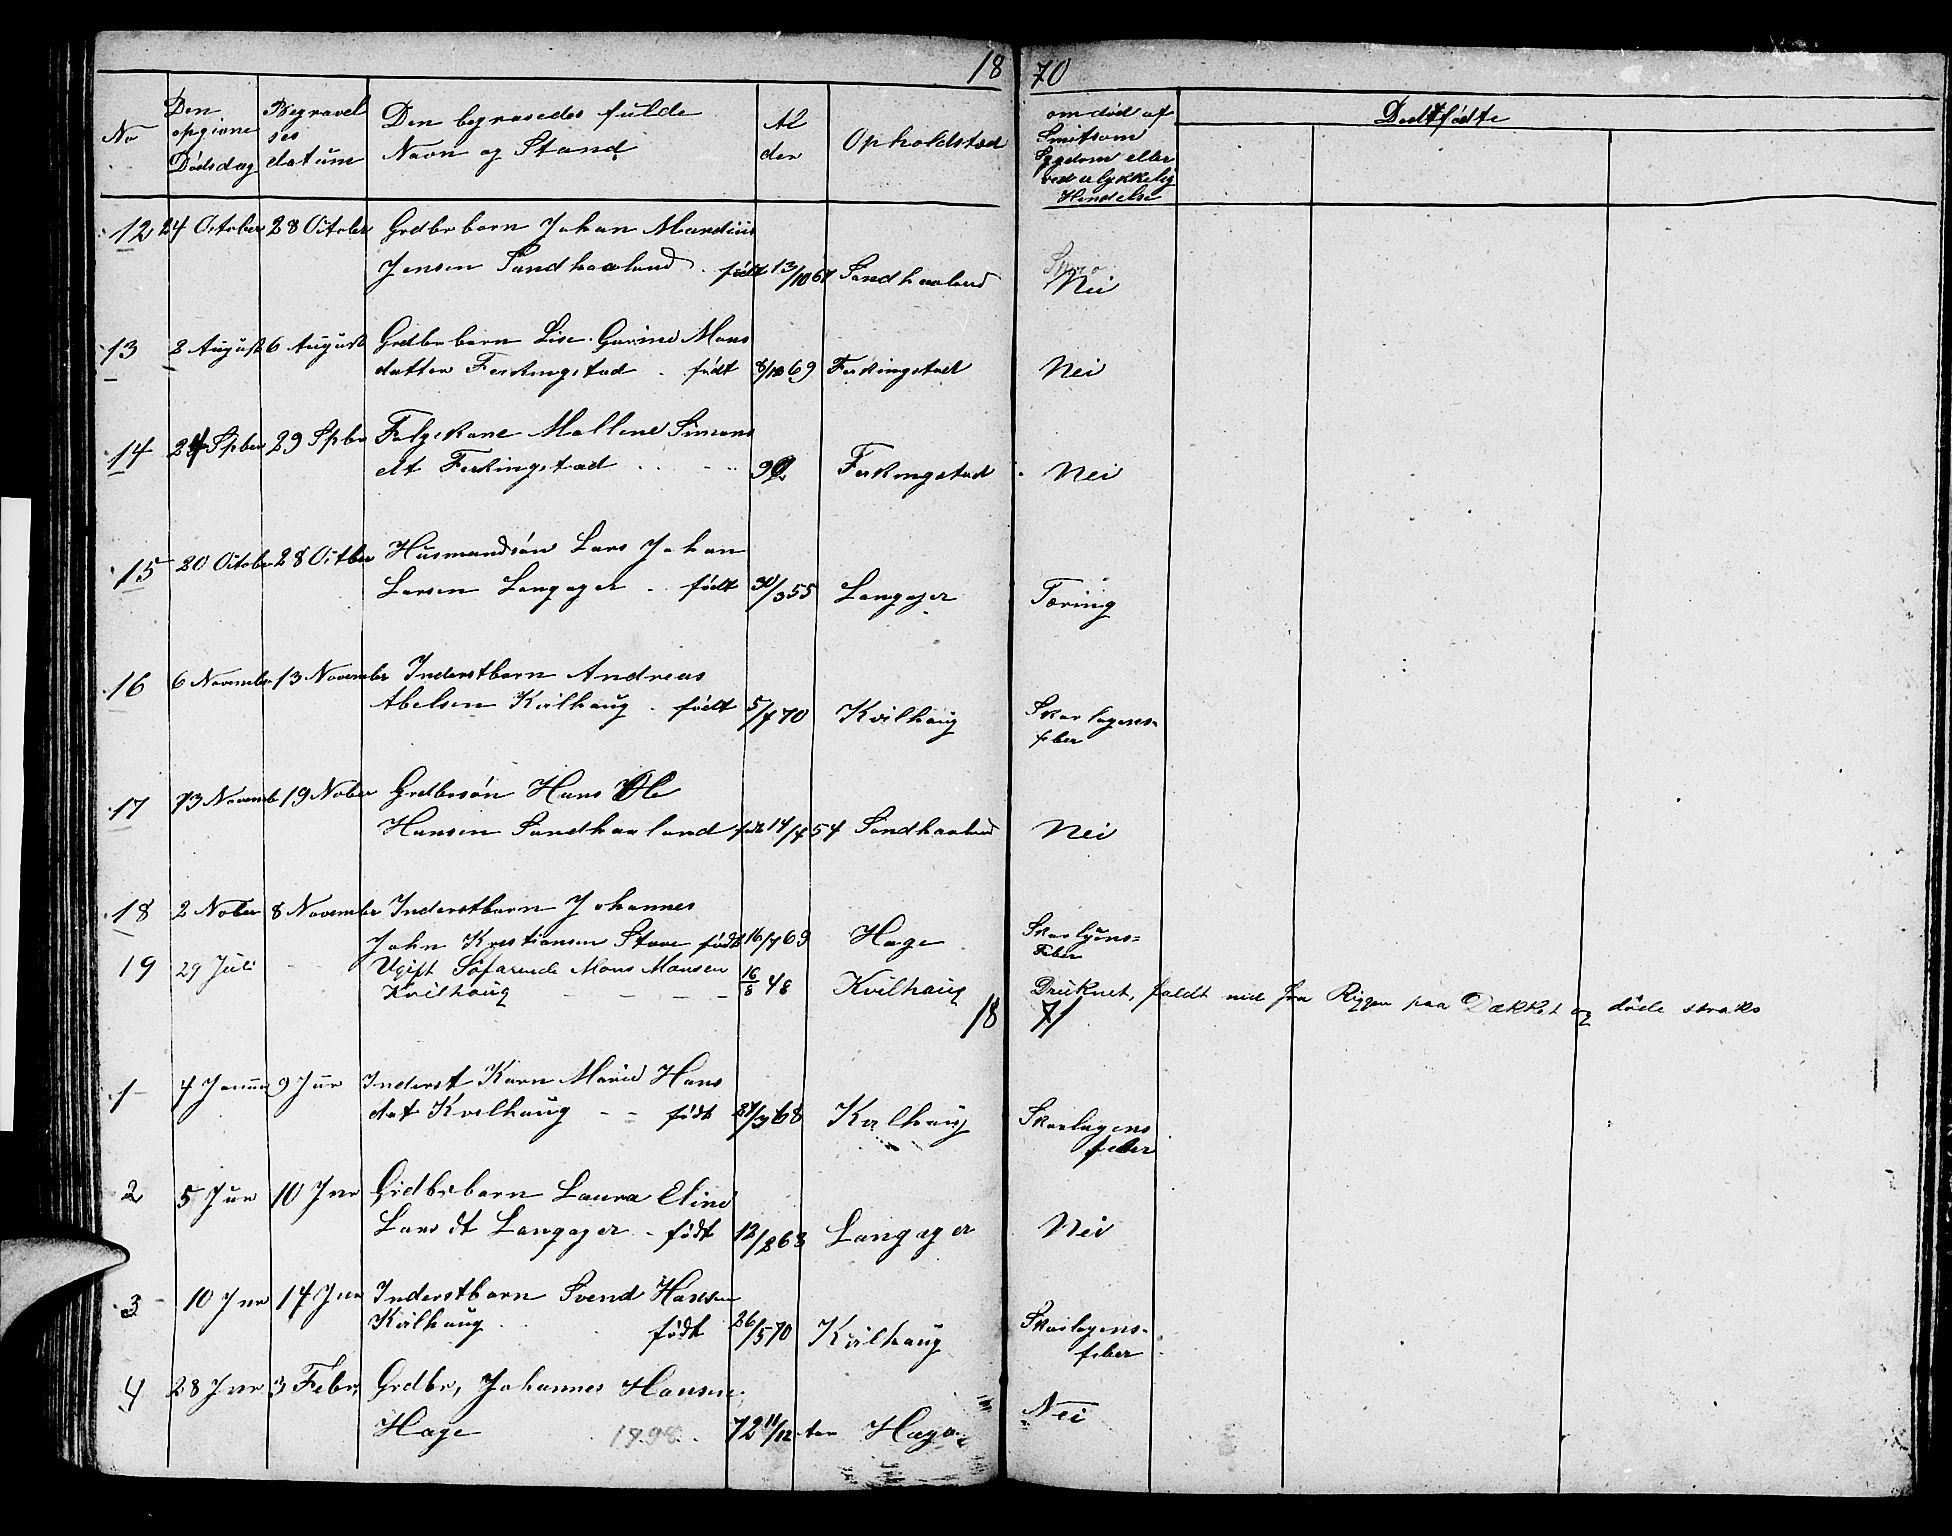 18 70
No
Den opgivne Dødsdag
Begravelses datum
Den begravedes fulde Navn og Stand
Alder
Opholdsted
om død af Smitsom Sygdom eller ved ulykkelig Hendelse
Dødfødte
12 24 October 28 October Grdbrbarn Johan Mandius
Jensen Sandhaaland. født 13/10 67 Sandhaaland Nei
13 2 August 6 August Grdbrbarn Lise Gurine Mons
datter Ferkingstad . født 8/10 69 Ferkingstad Nei
14 24 Spber 29 Spbr Folgekone Mallene Simons
dt Ferkingstad 92 Ferkingstad Nei
15 20 Octobr 28 Octber Husmandsøn Lars Johan
Larsen Langager .. født 30/3 55 Langager Tæring
16 6 November 13 November Inderstbarn Andreas
Abelsen Kvilhaug . født 5/7 70 Kvilhaug Skarlagens-
feber
17 13 Novemb 19 Nober Grdbrsøn Hans Ole
Hansen Sandhaaland født 14/4 54 Sandhaaland Nei
18 2 Nober 8 November Inderstbarn Johannes
John Kristiansen Stave født 16/7 69 Hage Skarlagens-
Feber
19 29 Juli Ugift Søfarende Mons Monsen
Kvilhaug 16/8 48 Kvilhaug Druknet, faldt ned fra Riggen paa Dækket og døde straks
18 71
1 4 Januar 9 Jnr Inderst Karn Marie Hans
dat Kvilhaug - - født 27/3 68 Kvilhaug Skarlagens
feber
2 5 Jnr 10 Jnr Grdbrbarn Laura Eline
Lars dt Langager . født 12/8 63 Langager Nei
3 10 Jnr 14 Jnr Inderstbarn Svend Hansen
Kvilhaug født 26/5 70 Kvilhaug Skarlagens-
feber
4 28 Jnr 3 Febr, Grdbr, Johannes Hansen
Hage 1798 72 11/12 Hage Nei